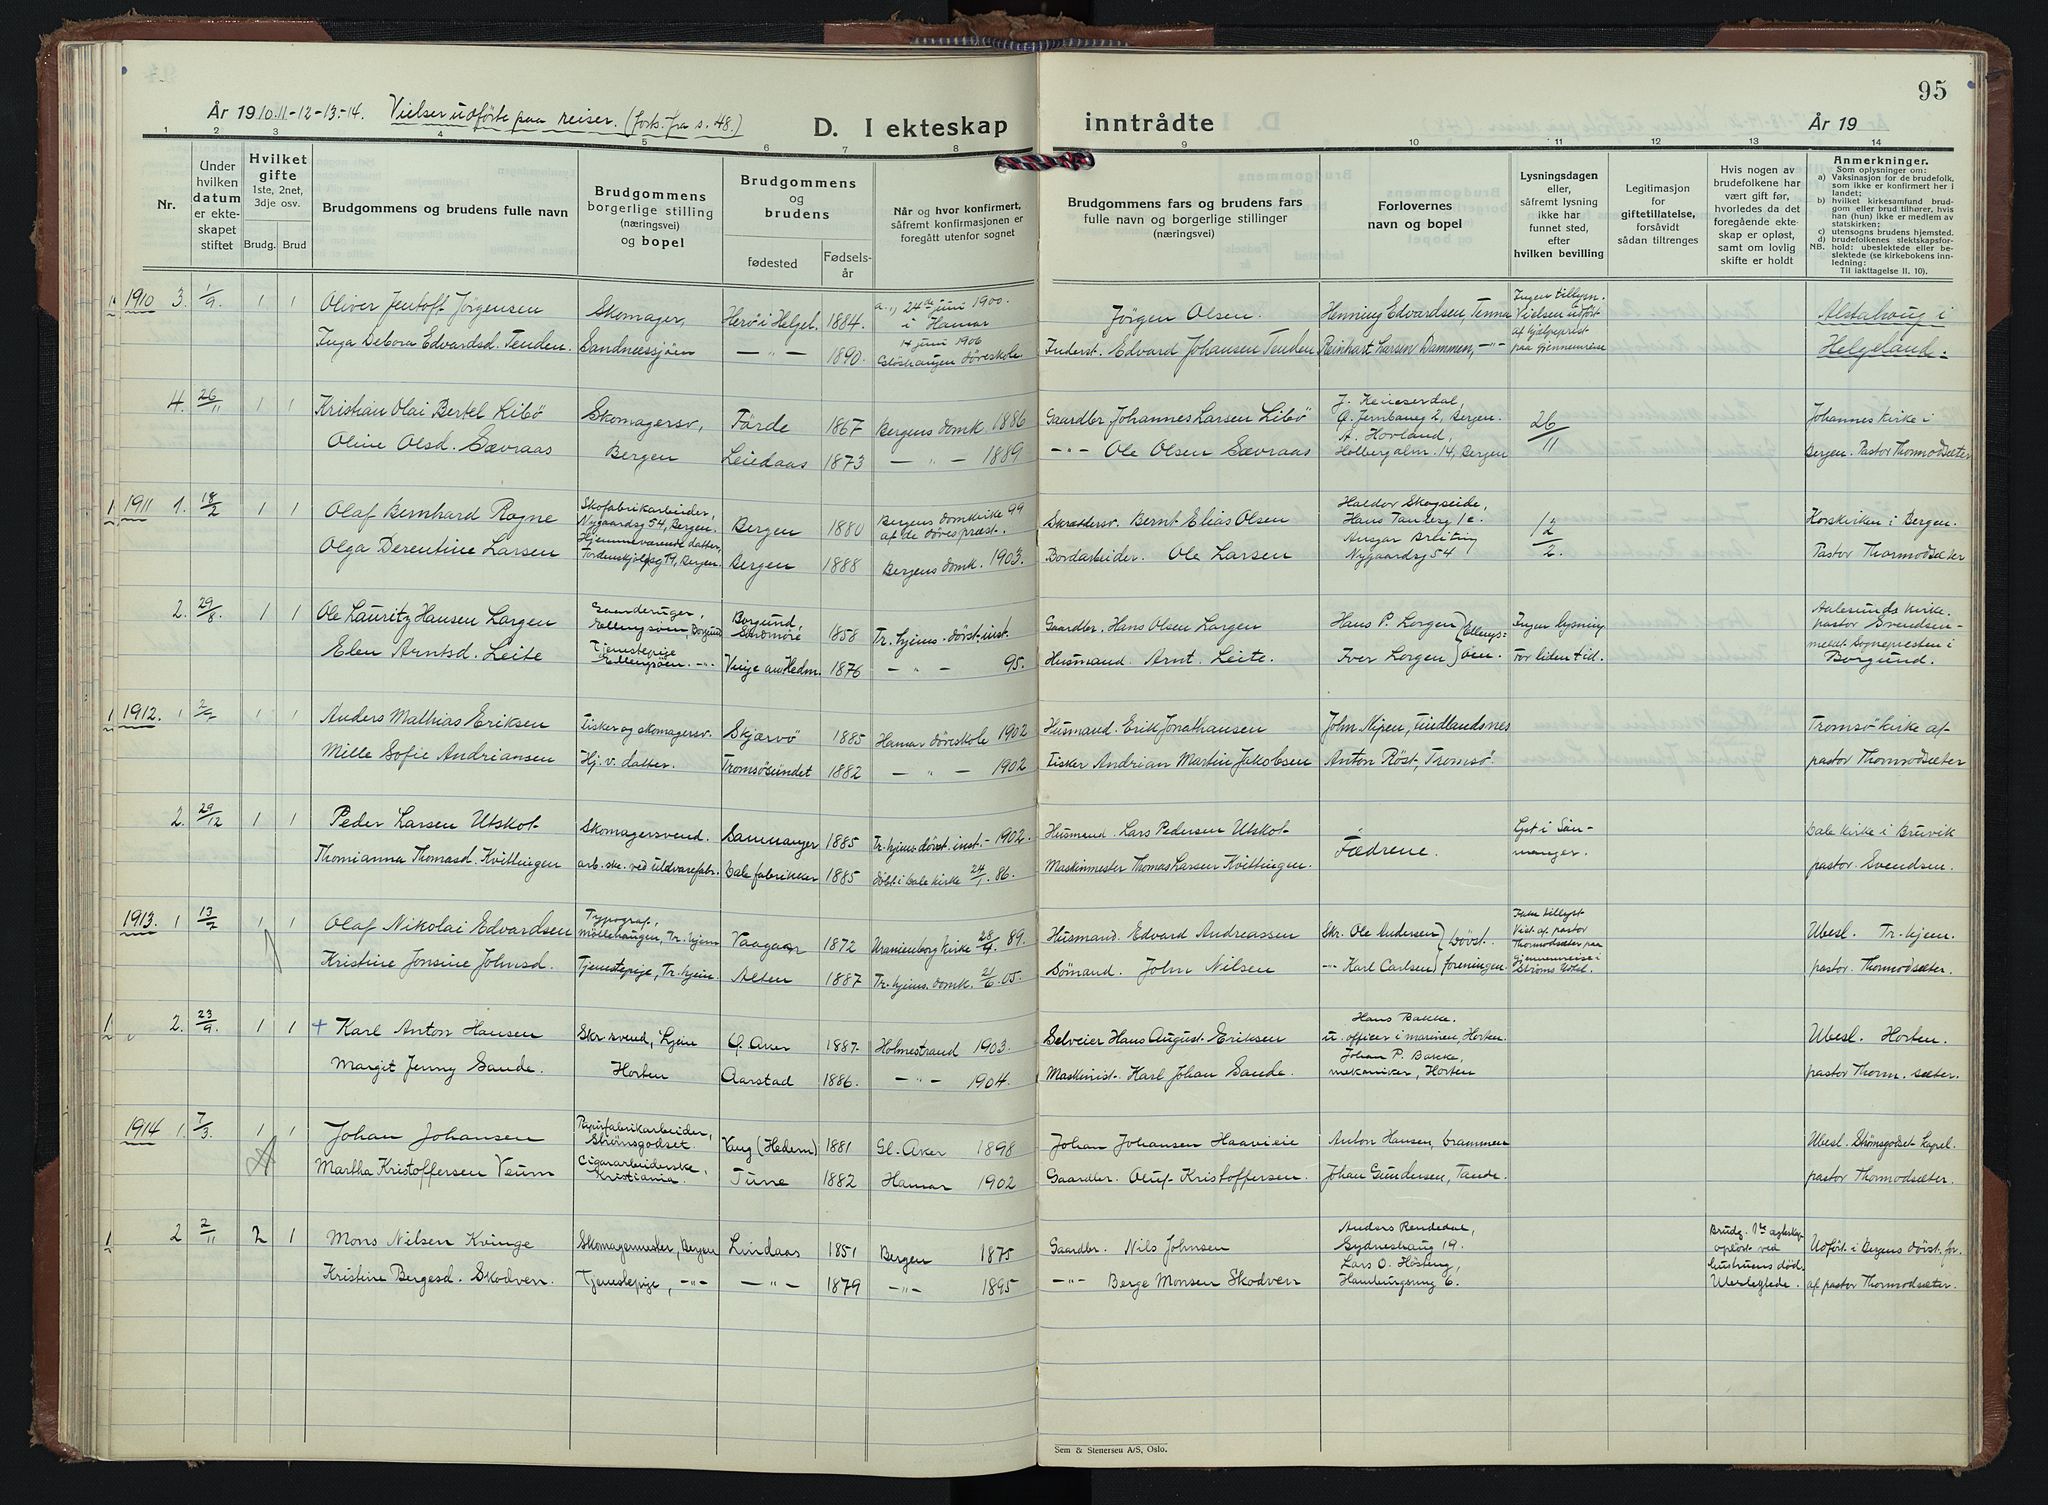 År 1910.11-12-13-14. Vielser udförte paa reiser. (forts. fra s. 48.)
D. I ekteskap inntrådte
År 19
95
1 2 3 4 5 6 7 8 9 10 11 12 13 14
Nr.
Under hvilken datum er ekteskapet stiftet
Hvilket gifte 1ste, 2net, 3dje osv.
Brudg. Brud
Brudgommens og brudens fulle navn
Brudgommens borgerlige stilling (næringsvei) og bopel
Brudgommens og brudens
fødested
Fødsels-år
Når og hvor konfirmert, såfremt konfirmasjonen er foregått utenfor sognet
Brudgommens fars og brudens fars fulle navn og borgerlige stillinger (næringsvei)
Forlovernes navn og bopel
Lysningsdagen eller, såfremt lysning ikke har funnet sted, efter hvilken bevilling
Legitimasjon for giftetillatelse, forsåvidt sådan tiltrenges
Hvis nogen av brudefolkene har vært gift før, hvorledes da det foregående ekteskap er opløst, samt om lovlig skifte er holdt
Anmerkninger.
Som oplysninger om:
a) Vaksinasjon for de brudefolk, som ikke er konfirmert her i landet;
b) hvilket kirkesamfund brudgom eller brud tilhører, hvis han (hun) ikke er medlem av statskirken;
c) utensogns brudens hjemsted.
d) brudefolkenes slektskapsforhold: ubeslektede eller beslektede (se kirkebokens innledning:
NB. Til iakttagelse II. 10).
1910 3. 1/9. 1 1 Oliver Jentoft Jörgensen Skomager, Herö i Helgel. 1884. 24de juni 1900. i Hamar Jörgen Olsen. Henning Edvardsen, Tenna Ingen tillysn. Vielsen udfört af hjelpeprest paa gjennemreise Alstahoug i
Inga Debora Edvardsd. Tenden. Sandnessjöen — " — 1890. 14 juni 1906 döveskole Inderst. Edvard Johansen Tenden Reinhart Larsen Dammen, -"- Helgeland.
4. 26/11 1 1 Kristian Olai Bertel Libö Skomagersv, Förde 1867 Bergens domk. 1886 Gaardbr. Johannes Larsen Libö Jernbaneg 2, Bergen. 26/11 Johannes kirke i
Oline Olsd. Sævraas Bergen 1873 — " — 1889 -"- Ole Olsen Sævraas A. Hovland, Holbergalm. 14, Bergen Bergen. Pastor Thormodsæter
1 1911 1. 18/2 1 1 Olaf Bernhard Rogne Skofabrikarbeider, Nygaardsg 54, Bergen. Bergen 1880 Bergens domkirke 99 af de döves præst. Skræddersv. Bernt Elias Olsen Haldor Skogseide, Hans Tanksg 1c. 12/2. Korskirken i Bergen.
Olga Derentine Larsen Hjemmeværende datter, Tordenskjoldsg 19, Bergen. Bergen 1888 Bergens domk. 1903. Bordarbeider. Ole Larsen Ansgar Breiting Nygaardsg 54 Pastor Thormodsæter
2. 29/8. 1 1 Ole Lauritz Hansen Lorgen Ellengsöen, Borgund Borgund, Söndmöre 1858 Tr. hjems. dövst. inst. Gaardbr. Hans Olsen Lorgen Hans P. Lorgen Ellengsöen. Ingen lysning Aalesunds kirke. pastor Svendsen
Elen Arntsd. Leite Tjenestepige Ellengsöen. -"- 1876 — " — 95. Husmand. Arnt. Leite. Iver Lorgen For liden tid. meldt Sognepresten i Borgund.
1 1912. 1 1 1 Anders Mathias Eriksen Fisker og skomagersv. Skjærvö 1885 Hamar döveskole 1902 Husmand. Erik Jonathansen John Nipen, Findlandsnes Tromsö kirke af
Mille Sofie Andriansen Hj. v. datter. Tromsösundet 1882 — " — 1902 Fisker Andrian Martin Jakobsen Anton Röst, Tromsö pastor Thormodsæter
2. 29/12 1 1 Peder Larsen Utskot Skomagersvend. Samnanger 1885 Tr. hjems dövst. inst. - 1902. Husmand. Lars Pedersen Utskot Fædrene. Lyst i Samnanger. Dale kirke i Bruvik
Thomianna Thomasd. Kvittingen arb. ske. ved uldvarefabr. Dale fabrikker 1885 döbt i Dale kirke 24/1. 86. Maskinmester Thomas Larsen Kvittingen. pastor. Svendsen.
1913. 1 13/2 1 1 Olaf Nikolai Edvardsen Typograf, Möllehaugen, Tr. hjem Vaagan 1872 Uranienborg kirke 28/4. 89. Husmand. Edvard Andreassen Skr. Ole Andersen Dövst. foreningen. Ikke tillyst Viet af pastor Thormodsæter paa gjennemreise i Ströms Hotel. Ubesl. Tr. hjem.
Kristine Jonsine Johnsd. Tjenestepige, Tr. hjem. Alten 1887 Tr. hjems. domk. 21/6. 05. Sömand. John Nilsen -"- Karl Carlsen pastor. Thormodsæter.
1 2. 23/9. 1 1 + Karl Anton Hansen Skr. svend, Ljan Ö. Aker 1887. Holmestrand 1903. Selveier Hans August Eriksen Hans Bakke. u. officer i marinen, Horten. Ubesl. Horten.
Margit Jenny Sande. Horten Aarstad 1886. — " — 1904. Maskinist. Karl Johan Sande. Johan P. Bakke, mekaniker, Horten pastor Thorm. sæter.
1914 1. 7/3. 1 1 Johan Johansen Papirfabrikarbeider, Strömsgodset Vang (Hedem) 1881 Gl. Aker 1898 Johan Johansen Haavieie Anton Hansen, Drammen Ubesl. Strömsgodset kapel.
Martha Kristoffersen Veum Cigararbeiderske, Kristiania. Tune 1882 Hamar 1902 Gaardbr. Oluf Kristoffersen. Johan Gundersen, Tande. pastor Thormodsæter.
1 2 2/11 2 1 Mons Nilsen Kvinge Skomagermester, Bergen Lindaas 1851 Bergen 1875 Gaardbr. Nils Johnsen Anders Rendedal, Sydneshaug 19. Brudg. 1ste egteskap oplöst ved hustruens död. Udfört i Bergens dövst. for.
Kristine Bergesd. Skodven. Tjenestepige, -"- — " — 1879 -"- 1895 -"- Berge Monsen Skodven Lars O. Hösteng, Hamburgsmug 6. Ubeslegtede. af pastor Thormodsæter.
Sem & Stenersen A/S, Oslo.